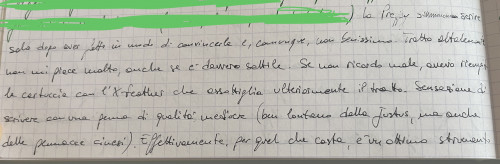 ) la Prefxxx scrive
solo dopo aver fatto in modo di convincerla e, comunque, non benissimo. Tratto altalenante
non mi piace molto, anche se è davvero sottile. Se non ricordo male, avevo riemp
la cartuccia con l'X-feather che assottiglia ulteriormente il tratto. Sensazione di
scrivere con una penna di qualità mediocre (ben lontano dalla Justus, ma anche
dalle pennacce cinesi). Effettivamente, per quel che costa, è un ottimo strumento